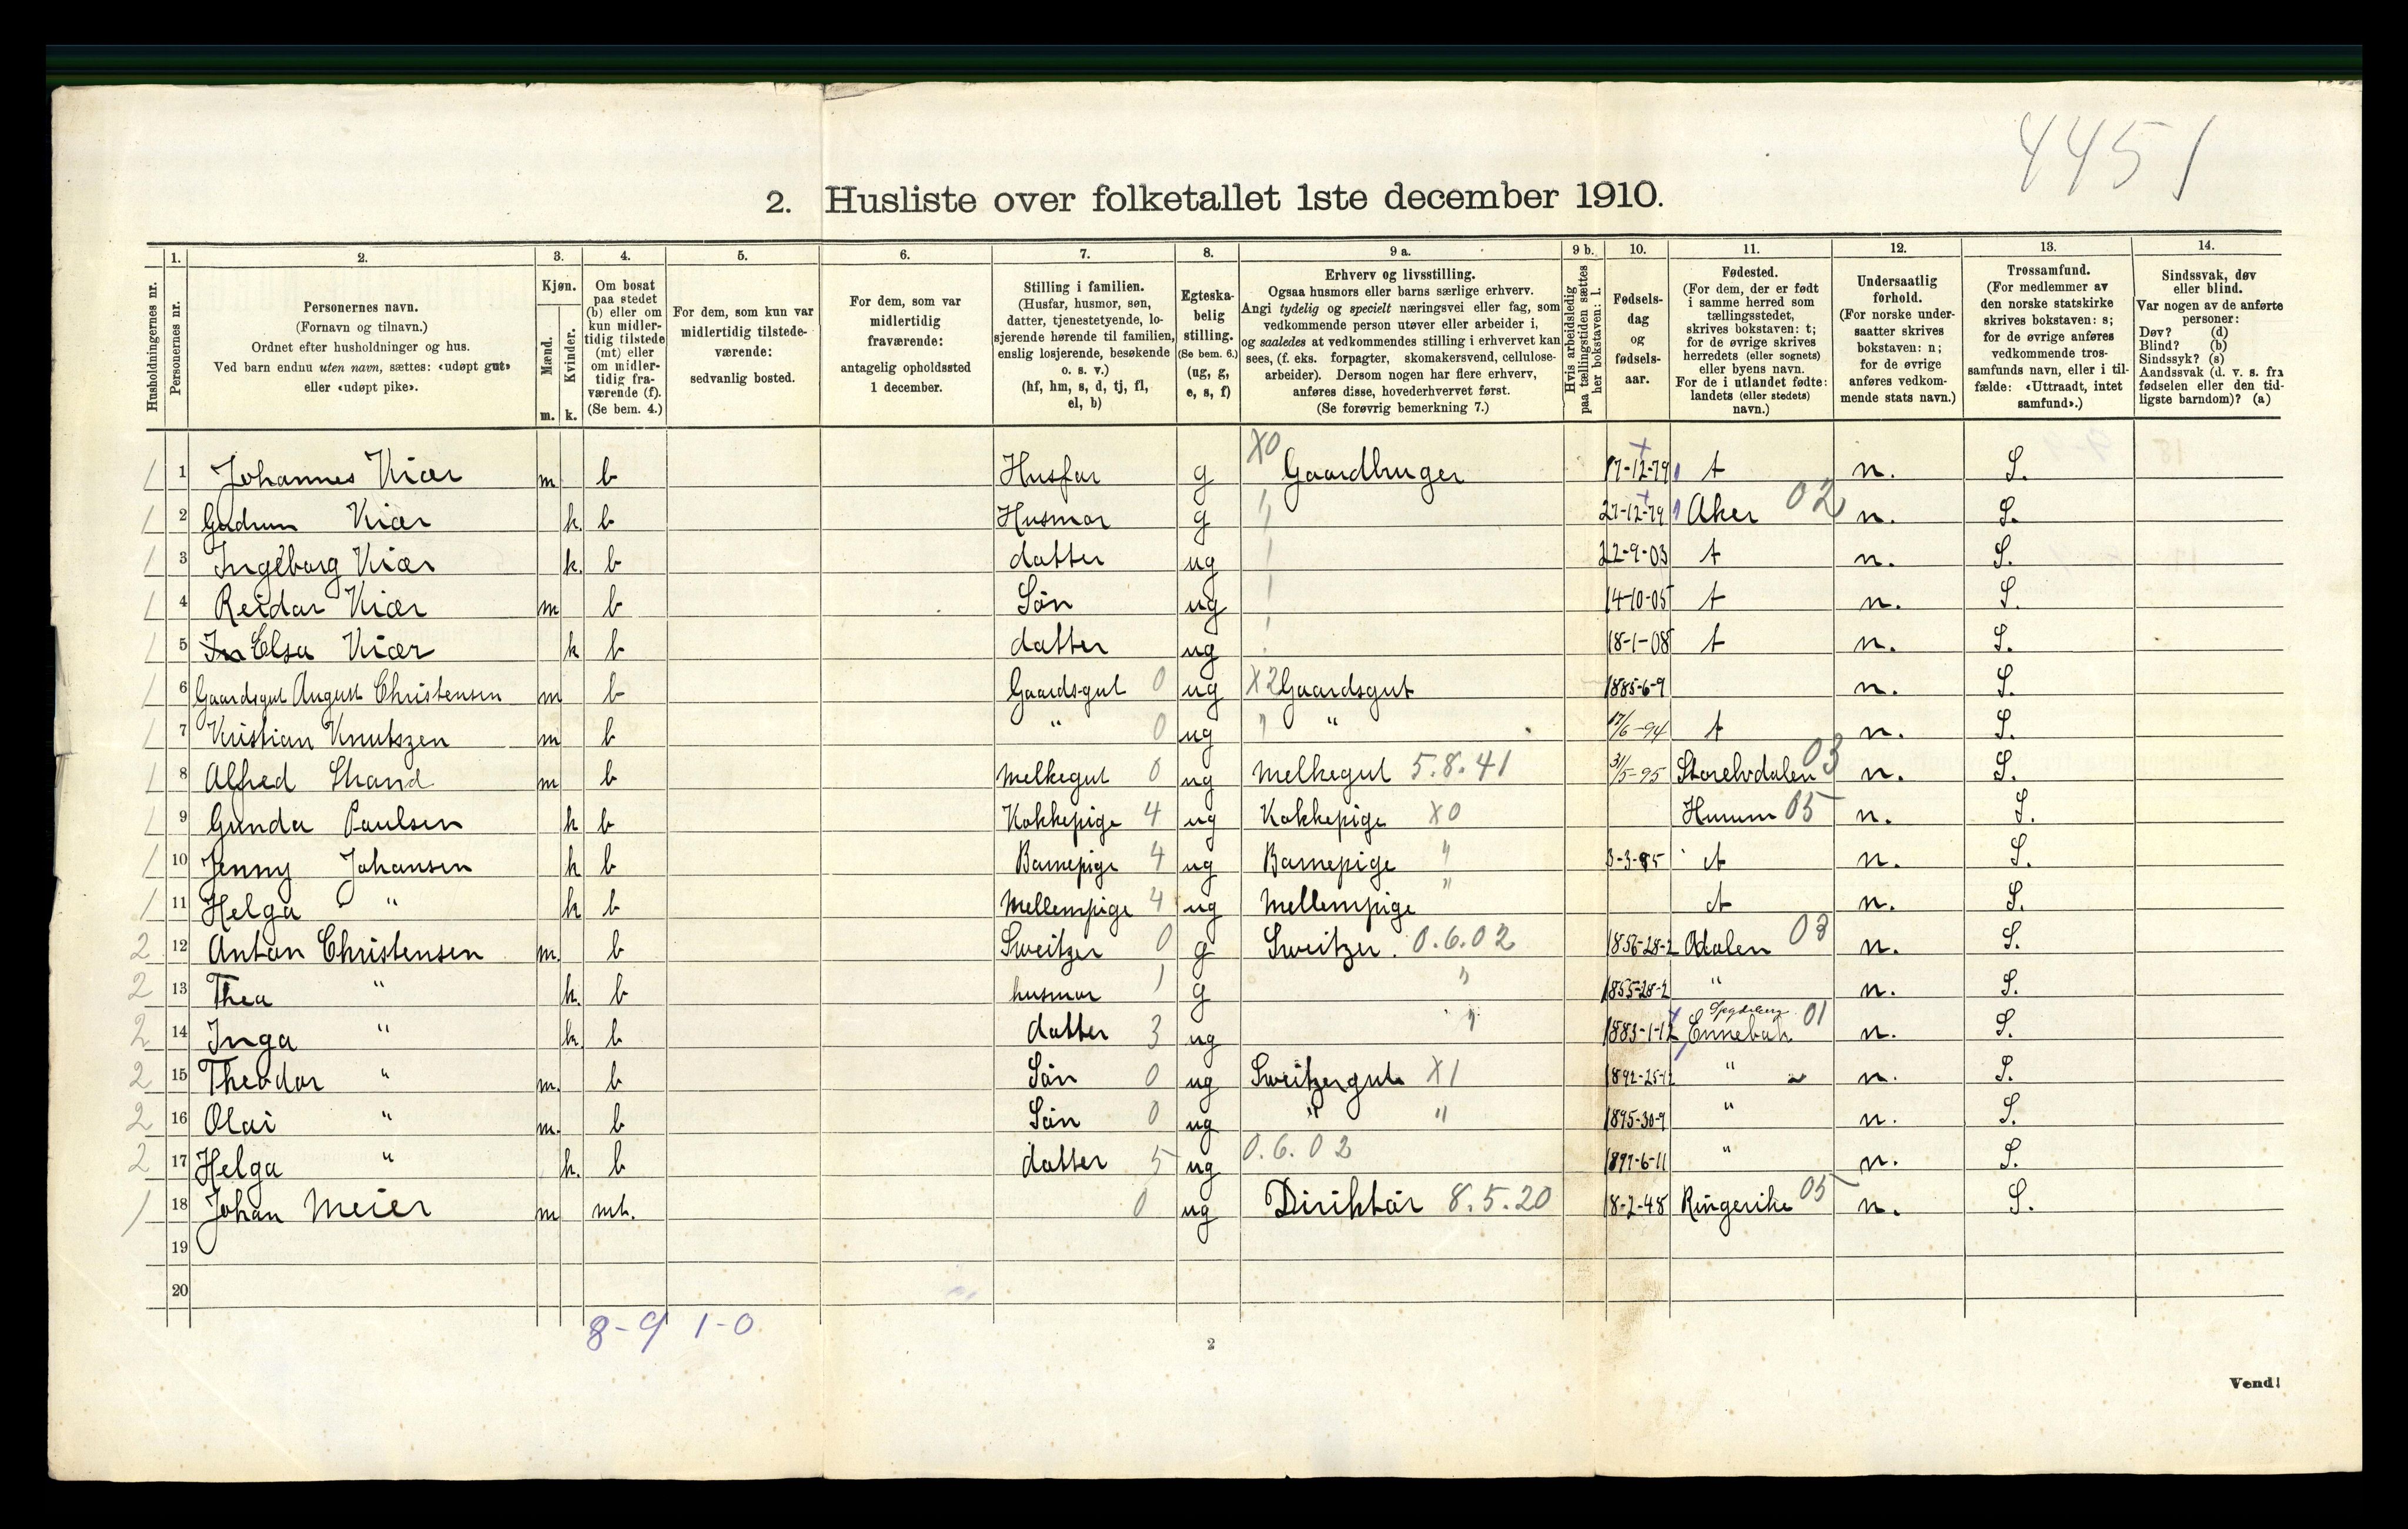 4451
2. Husliste over folketallet 1ste december 1910.
Husholdningernes nr.
1. Personernes nr.
2. Personernes navn. (Fornavn og tilnavn.) Ordnet efter husholdninger og hus. Ved barn endnu uten navn, sættes: «udøpt gut» eller «udøpt pike».
3. Kjøn. Mænd. m. Kvinder. k.
4. Om bosat paa stedet (b) eller om kun midlertidig tilstede (mt) eller om midlertidig fraværende (f). (Se bem. 4.)
5. For dem, som kun var midlertidig tilstedeværende: sedvanlig bosted.
6. For dem, som var midlertidig fraværende: antagelig opholdssted 1 december.
7. Stilling i familien. (Husfar, husmor, søn, datter, tjenestetyende, losjerende hørende til familien, enslig losjerende, besøkende o. s. v.) (hf, hm, s, d, tj, fl, el, b)
8. Egteskabelig stilling. (Se bem. 6.) (ug, g, e, s, f)
9 a. Erhverv og livsstilling. Ogsaa husmors eller barns særlige erhverv. Angi tydelig og specielt næringsvei eller fag, som vedkommende person utøver eller arbeider i, og saaledes at vedkommendes stilling i erhvervet kan sees, (f. eks. forpagter, skomakersvend, cellulosearbeider). Dersom nogen har flere erhverv, anføres disse, hovederhvervet først. (Se forøvrig bemerkning 7.)
9 b. Hvis arbeidsledig paa tællingstiden sættes her bokstaven: l.
10. Fødselsdag og fødselsaar.
11. Fødested. (For dem, der er født i samme herred som tællingsstedet, skrives bokstaven: t; for de øvrige skrives herredets (eller sognets) eller byens navn. For de i utlandet fødte: landets (eller stedets) navn.)
12. Undersaatlig forhold. (For norske undersaatter skrives bokstaven: n; for de øvrige anføres vedkommende stats navn.)
13. Trossamfund. (For medlemmer av den norske statskirke skrives bokstaven: s; for de øvrige anføres vedkommende trossamfunds navn, eller i tilfælde: «Uttraadt, intet samfund».)
14. Sindssvak, døv eller blind. Var nogen av de anførte personer: Døv? (d) Blind? (b) Sindssyk? (s) Aandssvak (d. v. s. fra fødselen eller den tidligste barndom)? (a)
1 1 Johannes Kiær m b Husfar g X0 Gaardbruger 17-12-79 t n. S.
1 2 Gudrun Kiær k. b Husmor g " 27-12-79 Aker 02 n. S.
1 3 Ingeborg Kiær k. b datter ug " 22-9-03 t n. S.
1 4 Reidar Kiær m b Sön ug " 14-10-05 t n. S.
1 5 In Elsa Kiær k b datter ug " 18-1-08 t n. S.
1 6 Gaardsgut August Christensen m b Gaardsgut 0 ug X2 Gaardsgut 1885-6-9 n. S.
1 7 Kristian Knutszen m b " 0 ug " " 17/6-94 t n. S.
1 8 Alfred Strand m b Melkegut 0 ug Melkegut 5.8.41 31/5-95 Storelvdalen 03 n. S.
1 9 Gunda Paulsen k b Kokkepige 4 ug Kokkepige X0 Hurum 05 n. S.
1 10 Jenny Johansen k b Barnepige 4 ug Barnepige " 3-3-85 t n. S.
1 11 Helga " k b Mellempige 4 ug Mellempige " t n. S.
2 12 Anton Christensen m. b Sweitzer 0 g Sweitzer. 0.6.02 1856-28-2 Odalen 03 n. S.
2 13 Thea " k. b husmor 1 g " 1855-28-2 " n. S.
2 14 Inga " k. b datter 3 ug " 1883-1-12 Spydeberg Ennebak 01 n. S.
2 15 Theodor " m. b Sön 0 ug Sweitzergut X1 1892-25-12 " n. S.
2 16 Olai " m. b Sön 0 ug " " 1895-30-9 " n. S.
2 17 Helga " k. b datter 5 ug 0.6.02 1897-6-11 " n. S.
1 18 Johan Meier m mt. 0 ug Diriktör 8.5.20 18-2-48 Ringerike 05 n. S.
19
20
8-9 1-0
2
Vend!